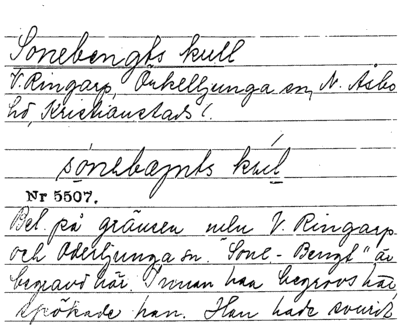 Sonebengts kull
V. Ringarp, Örkelljunga sn, N. Åsbo
hd, Kristianstads l.
sónebæŋts kúl
Nr 5507.
Bel. på gränsen mln V. Ringarp
och Oderljunga sn. "Sone-Bengt" är
begravd här. Innan han begrovs här
spökade han. Han hade svurit